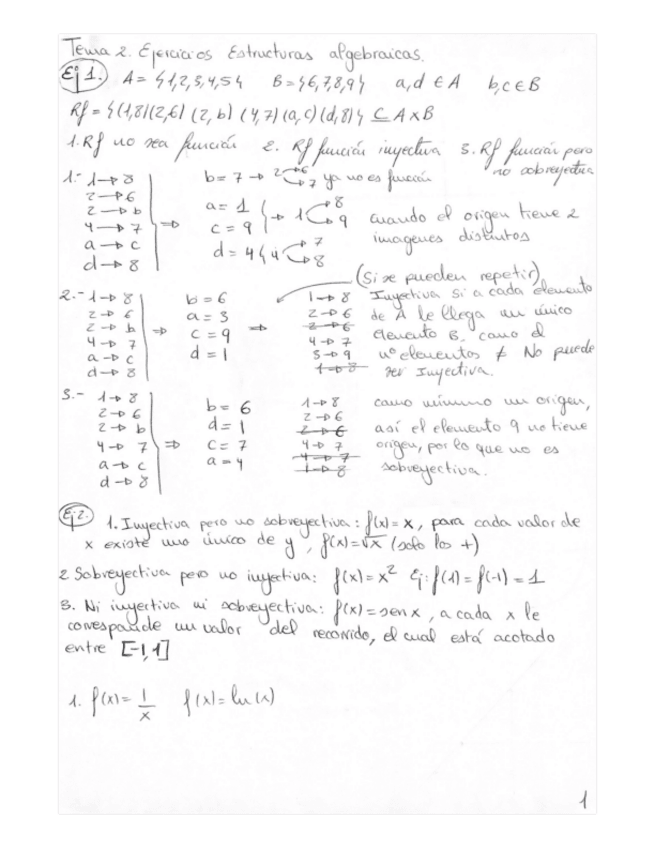 Tema 2. Ejercicios Estructuras algebraicas.
Ej 1. A = {1,2,3,4,5} B = {6,7,8,9} a,d ∈ A b,c ∈ B
Rf = {(1,8)(2,6) (2,b) (4,7) (a,c) (d,8)} ⊆ A×B
1. Rf no sea función 2. Rf función inyectiva 3. Rf función pero
no sobreyectiva
1.- 1→8
2→6
2→b
4→7
a→c
d→8
⇒
b=7 → 2 6 7 ya no es función
a=1
c=9
→ 1 8 9
d=4 { 4 7 8
cuando el origen tiene 2
imagenes distintos
2.- 1→8
2→6
2→b
4→7
a→c
d→8
⇒
b=6
a=3
c=9
d=1
⇒
1→8
2→6
2→6
4→7
3→9
1→8
(Si se pueden repetir)
Inyectiva si a cada elemento
de A le llega un único
elemento B, como el
nº elementos ≠ No puede
ser Inyectiva.
3.- 1→8
2→6
2→b
4→7
a→c
d→8
⇒
b=6
d=1
c=7
a=4
1→8
2→6
2→6
4→7
4→7
1→8
como mínimo un origen,
así el elemento 9 no tiene
origen, por lo que no es
sobreyectiva.
Ej 2. 1. Inyectiva pero no sobreyectiva: f(x)=x, para cada valor de
x existe uno único de y, f(x)=√x (solo los +)
2 Sobreyectiva pero no inyectiva: f(x)=x² Ej: f(1)=f(-1)=1
3. Ni inyectiva ni sobreyectiva: f(x)=senx, a cada x le
corresponde un valor del recorrido, el cual está acotado
entre [-1,1]
1. f(x)= 1/x f(x)=ln(x)
1